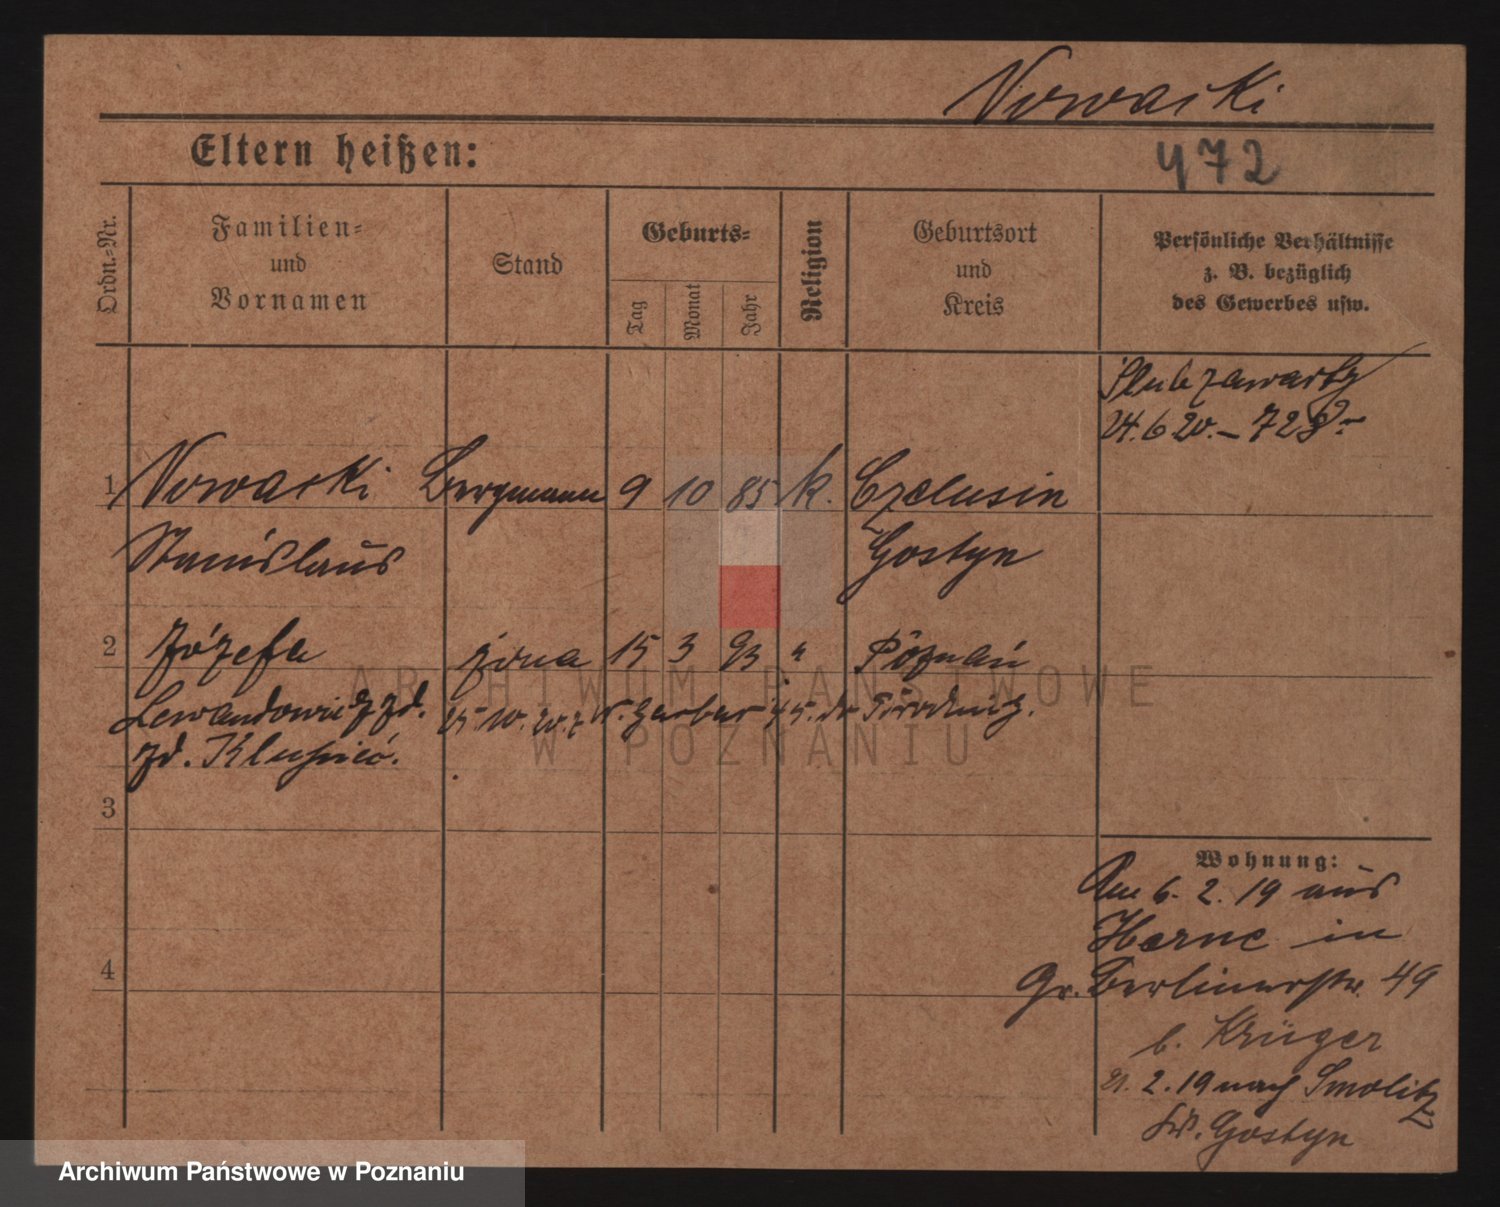 Nowacki
Eltern heißen:
472
Ordn.-Nr.
Familien-
und
Vornamen
Stand
Geburts-
Tag
Monat
Jahr
Religion
Geburtsort
und
Kreis
Persönliche Verhältnisse
z. B. bezüglich
des Gewerbes usw.
Ślub zawarty
24.6 20. – 728
1 Nowacki Bergmann 9 10 85 k. Czelusin
Stanislaus Gostyn
2 Józefa żona 15 3 93 " Poznań
Lewandowicz zd.
25.10.20. z
zd.
3
4
Wohnung:
Am 6. 2. 19 aus
Herne in
Gr. Berlinerstr. 49
b. Krüger
21. 2. 19 nach Smolitz
Kr. Gostyn
ARCHIWUM PAŃSTWOWE
W POZNANIU
Archiwum Państwowe w Poznaniu